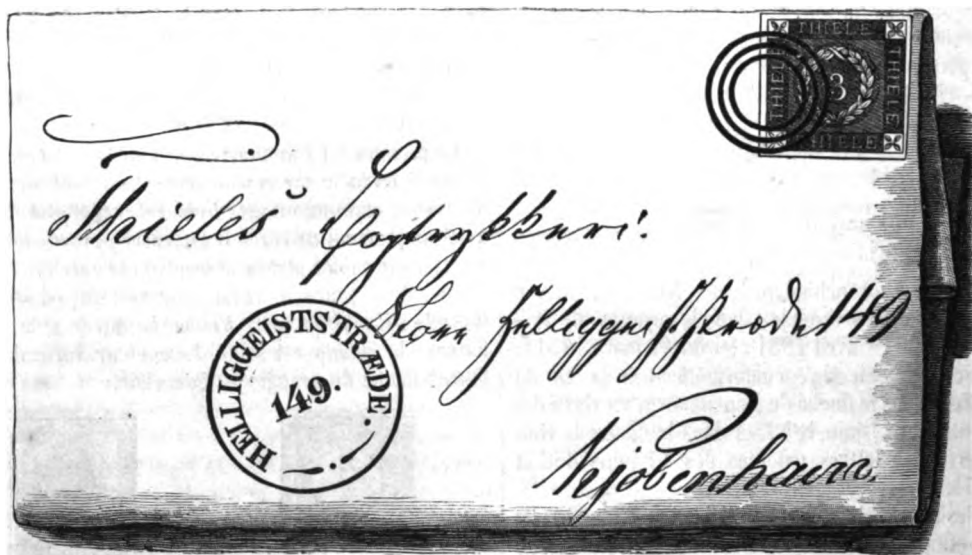 THIELE
THIELE 3 THIELE
THIELE
Thieles Bogtrykkeri.
Store Helligeiststræde 149
HELLIGGEISTSTRÆDE.
149
Kjøbenhavn.